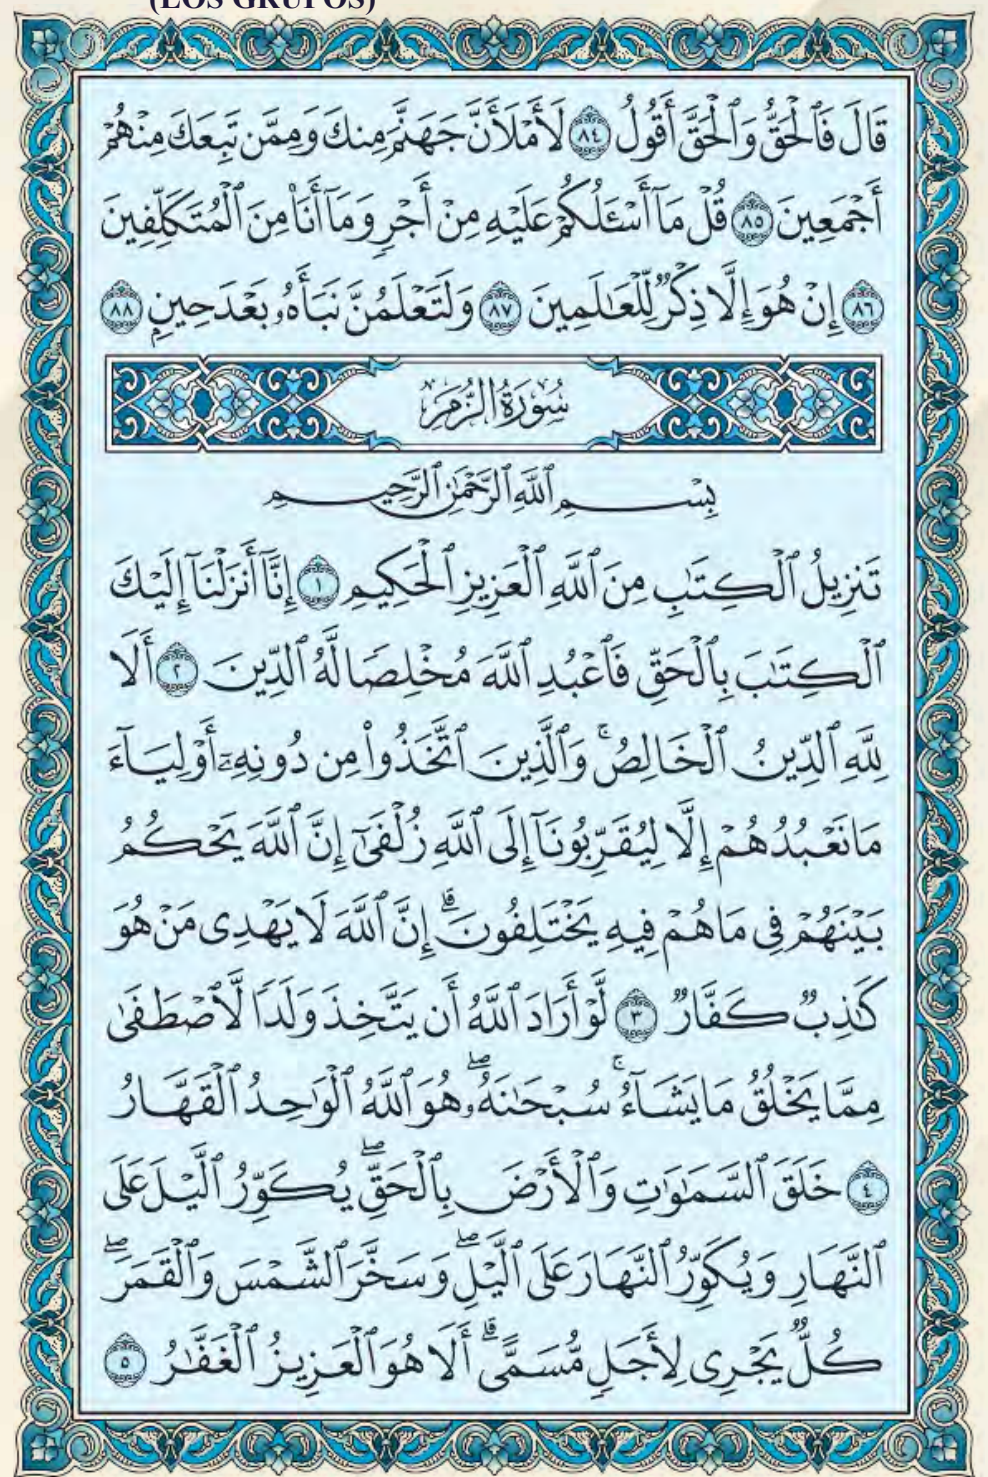 (LOS GRUPOS)
قَالَ فَٱلْحَقُّ وَٱلْحَقَّ أَقُولُ ٨٤ لَأَمْلَأَنَّ جَهَنَّمَ مِنكَ وَمِمَّن تَبِعَكَ مِنْهُمْ
أَجْمَعِينَ ٨٥ قُلْ مَآ أَسْـَٔلُكُمْ عَلَيْهِ مِنْ أَجْرٍ وَمَآ أَنَا۠ مِنَ ٱلْمُتَكَلِّفِينَ
٨٦ إِنْ هُوَ إِلَّا ذِكْرٌ لِّلْعَـٰلَمِينَ ٨٧ وَلَتَعْلَمُنَّ نَبَأَهُۥ بَعْدَ حِينٍۭ ٨٨
سُورَةُ الزُّمَرِ
بِسْمِ ٱللَّهِ ٱلرَّحْمَـٰنِ ٱلرَّحِيمِ
تَنزِيلُ ٱلْكِتَـٰبِ مِنَ ٱللَّهِ ٱلْعَزِيزِ ٱلْحَكِيمِ ١ إِنَّآ أَنزَلْنَآ إِلَيْكَ
ٱلْكِتَـٰبَ بِٱلْحَقِّ فَٱعْبُدِ ٱللَّهَ مُخْلِصًا لَّهُ ٱلدِّينَ ٢ أَلَا
لِلَّهِ ٱلدِّينُ ٱلْخَالِصُ ۚ وَٱلَّذِينَ ٱتَّخَذُوا۟ مِن دُونِهِۦٓ أَوْلِيَآءَ
مَا نَعْبُدُهُمْ إِلَّا لِيُقَرِّبُونَآ إِلَى ٱللَّهِ زُلْفَىٰٓ إِنَّ ٱللَّهَ يَحْكُمُ
بَيْنَهُمْ فِى مَا هُمْ فِيهِ يَخْتَلِفُونَ ۗ إِنَّ ٱللَّهَ لَا يَهْدِى مَنْ هُوَ
كَـٰذِبٌ كَفَّارٌ ٣ لَّوْ أَرَادَ ٱللَّهُ أَن يَتَّخِذَ وَلَدًا لَّٱصْطَفَىٰ
مِمَّا يَخْلُقُ مَا يَشَآءُ ۚ سُبْحَـٰنَهُۥ ۖ هُوَ ٱللَّهُ ٱلْوَٰحِدُ ٱلْقَهَّارُ
٤ خَلَقَ ٱلسَّمَـٰوَٰتِ وَٱلْأَرْضَ بِٱلْحَقِّ ۖ يُكَوِّرُ ٱلَّيْلَ عَلَى
ٱلنَّهَارِ وَيُكَوِّرُ ٱلنَّهَارَ عَلَى ٱلَّيْلِ ۖ وَسَخَّرَ ٱلشَّمْسَ وَٱلْقَمَرَ ۖ
كُلٌّ يَجْرِى لِأَجَلٍ مُّسَمًّى ۗ أَلَا هُوَ ٱلْعَزِيزُ ٱلْغَفَّـٰرُ ٥